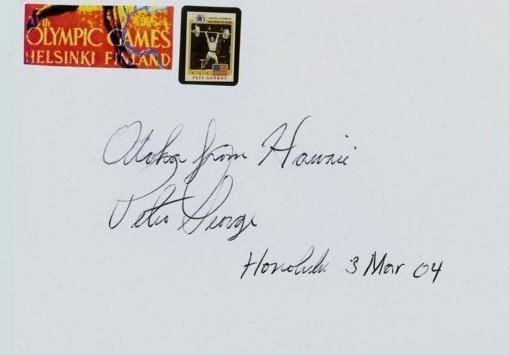 th
OLYMPIC GAMES
HELSINKI FINLAND
PETE GEORGE
Aloha from Hawaii
Peter George
Honolulu 3 Mar 04